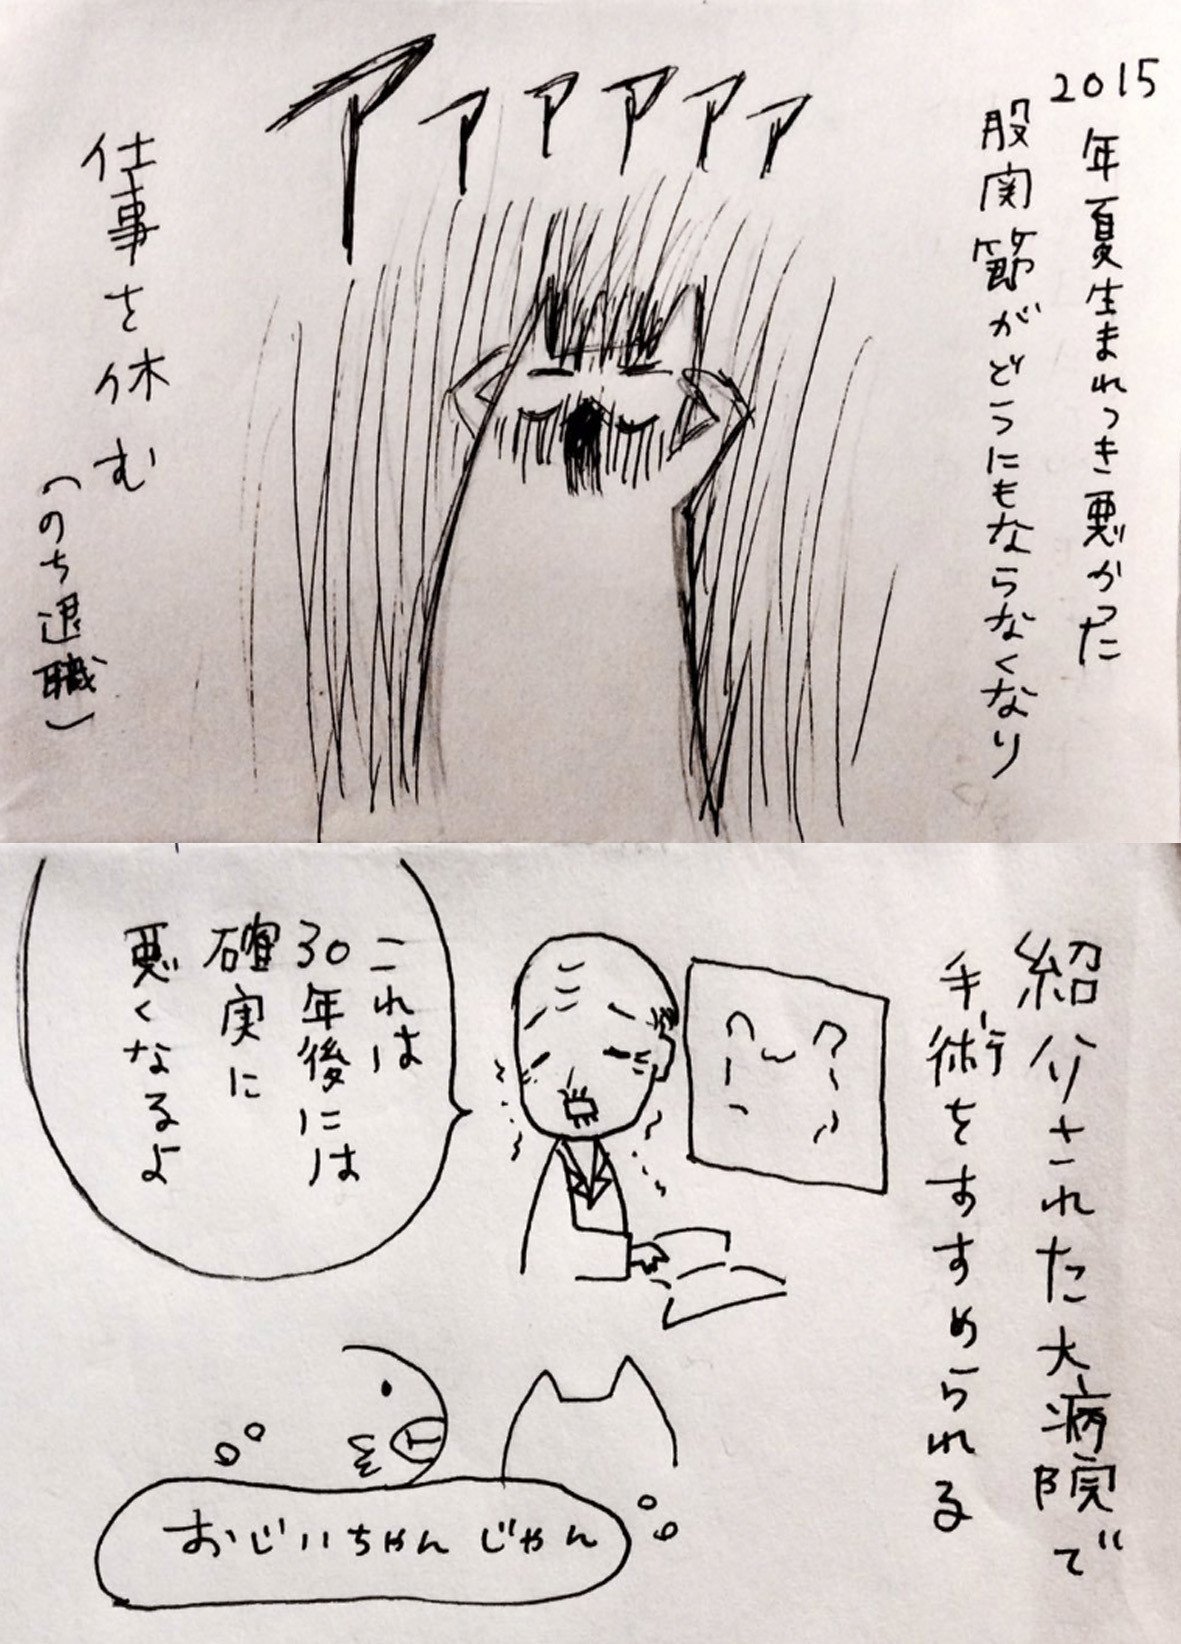 2015
年夏生まれつき悪かった
股関節がどうにもならなくなり
アァァァァァ
仕事を休む
(のち退職)
紹介された大病院で
手術をすすめられる
これは
30年後には
確実に
悪くなるよ
おじいちゃんじゃん